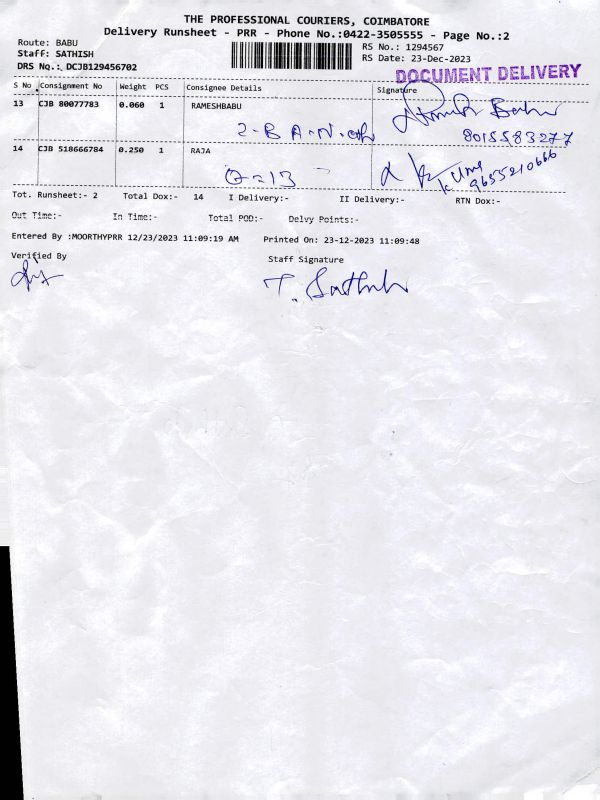 THE PROFESSIONAL COURIERS, COIMBATORE
Delivery Runsheet - PRR - Phone No.:0422-3505555 - Page No.:2
Route: BABU
Staff: SATHISH
DRS No.: DCJB129456702
RS No.: 1294567
RS Date: 23-Dec-2023
DOCUMENT DELIVERY
S No Consignment No Weight PCS Consignee Details Signature
13 CJB 80077783 0.060 1 RAMESHBABU
Babu
8015583277
14 CJB 518666784 0.250 1 RAJA
9655210666
Tot. Runsheet:- 2 Total Dox:- 14 I Delivery:- II Delivery:- RTN Dox:-
Out Time:- In Time:- Total POD:- Delvy Points:-
Entered By :MOORTHYPRR 12/23/2023 11:09:19 AM Printed On: 23-12-2023 11:09:48
Verified By Staff Signature
T. Sathish